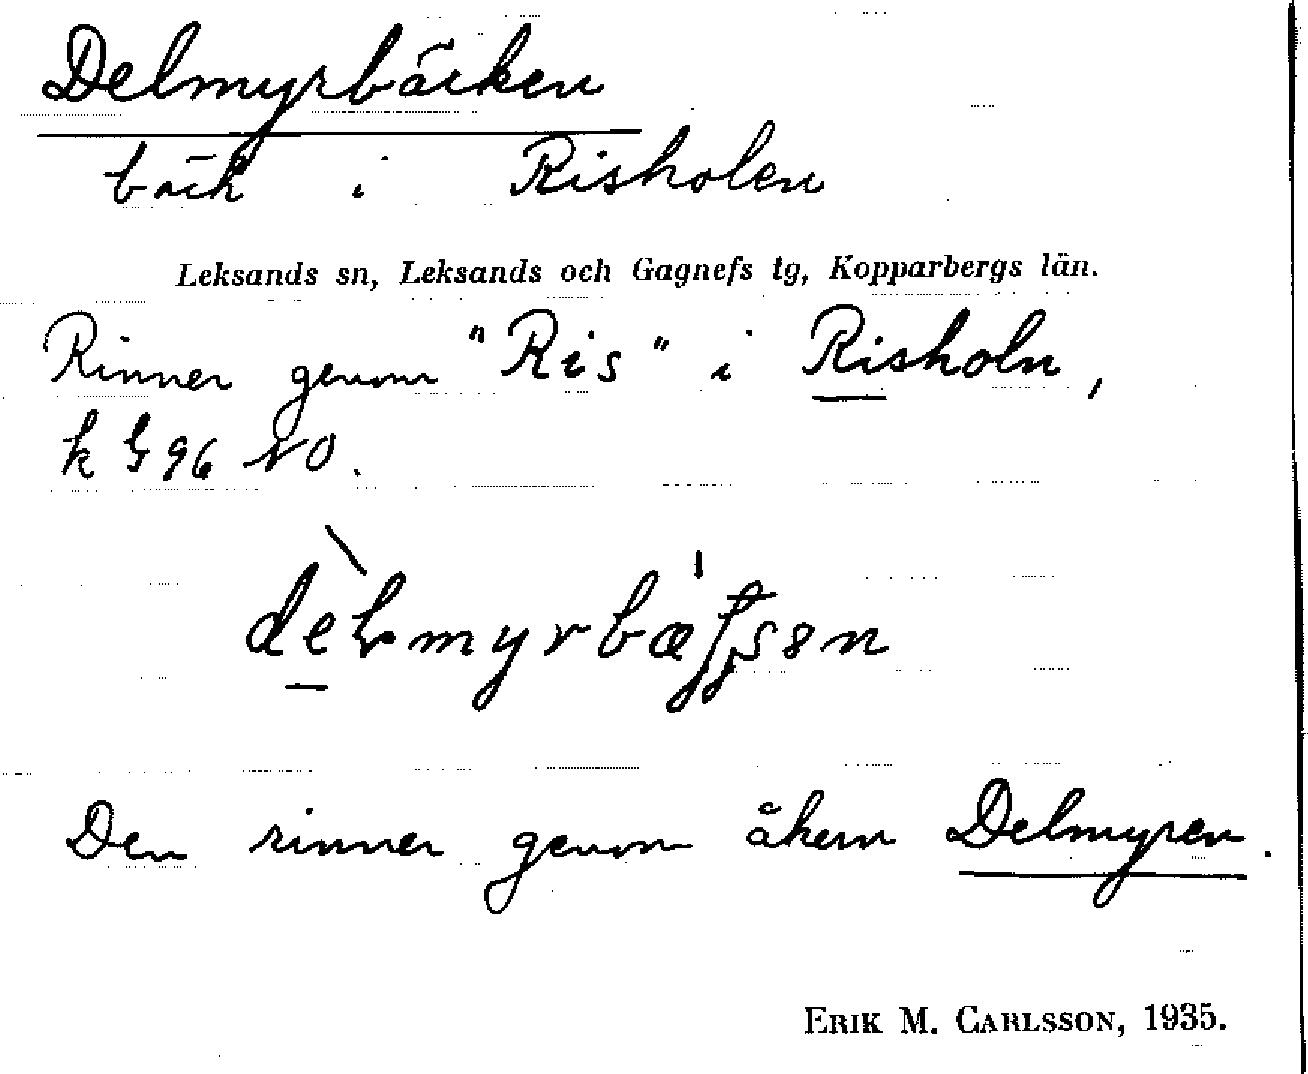 Delmyrbäcken
bäck i Risholen
Leksands sn, Leksands och Gagnefs tg, Kopparbergs län.
Rinner genom "Ris" i Risholn,
k G 96 NO.
Den rinner genom åkern Delmyren.
ERIK M. CARLSSON, 1935.